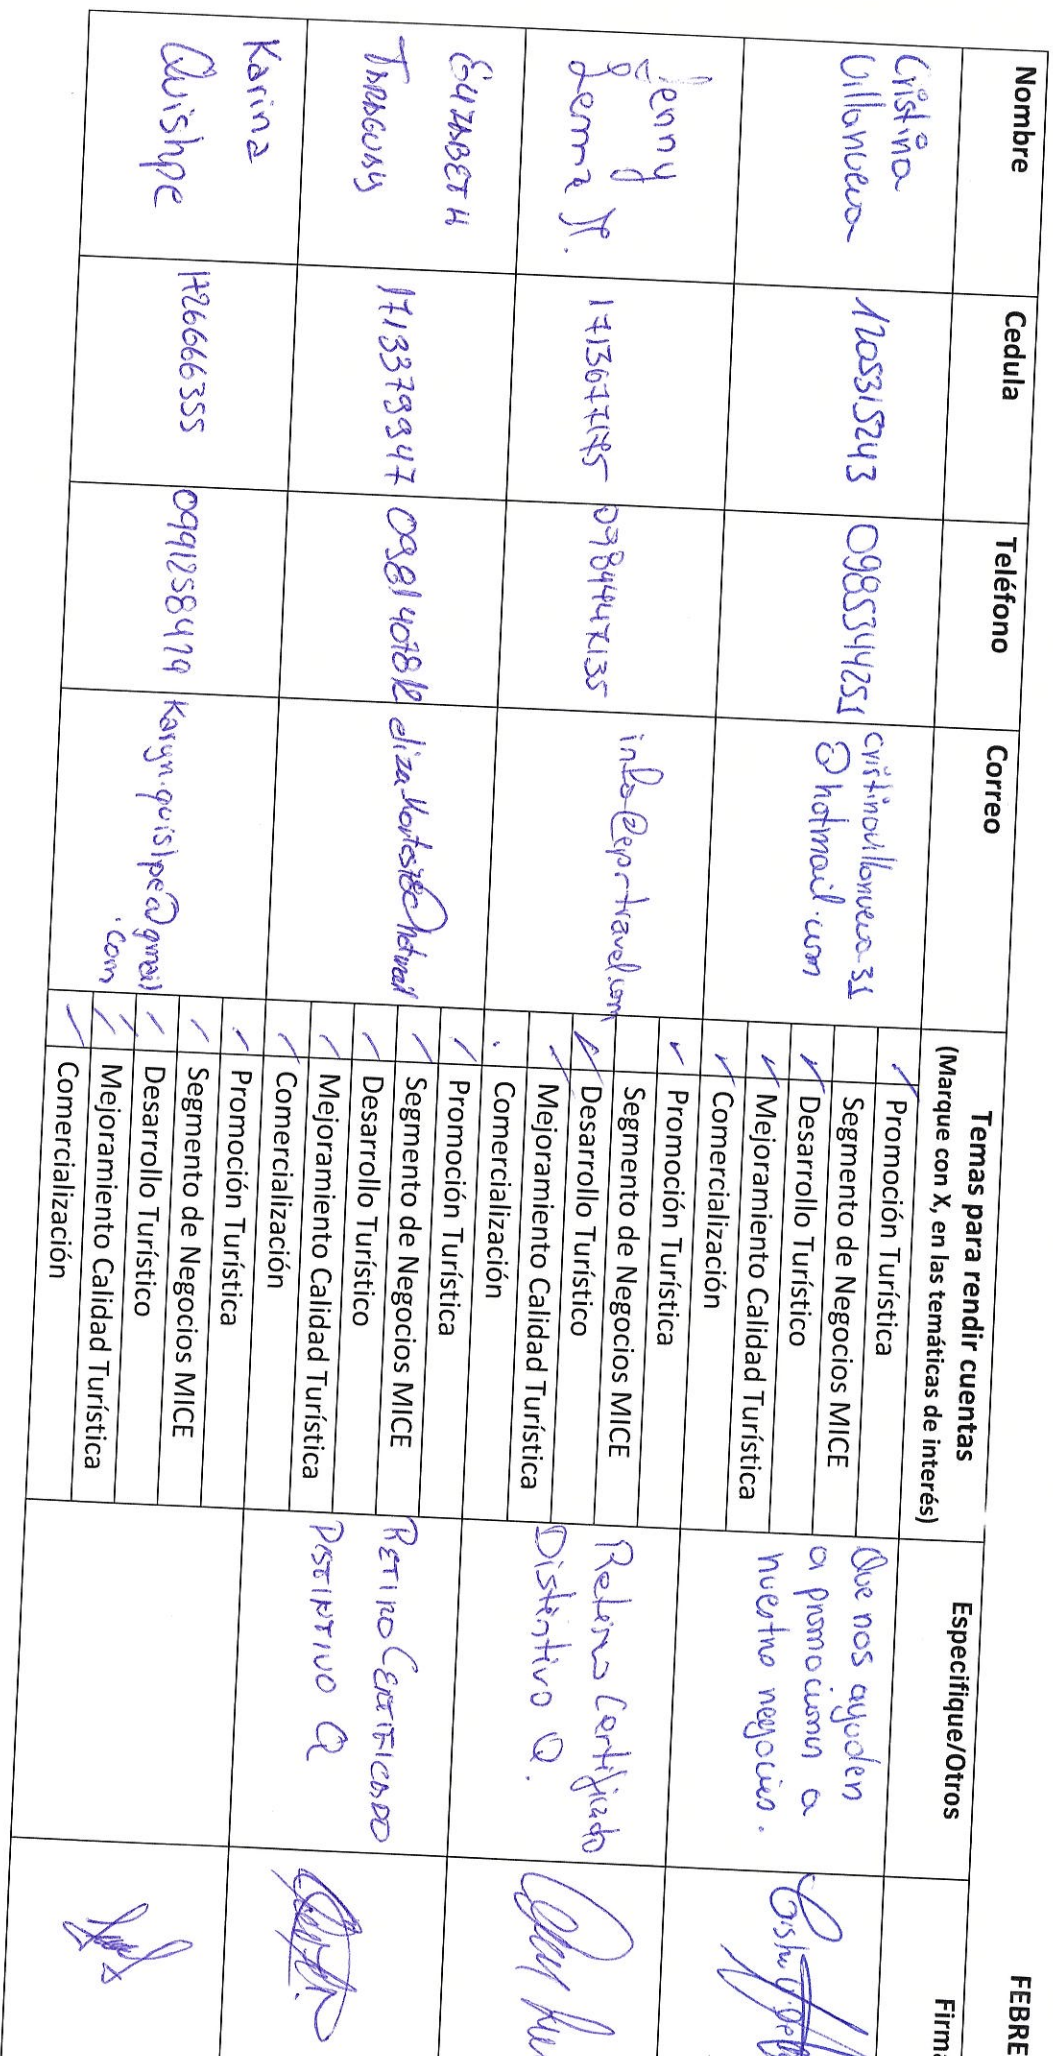 FEBRE
Nombre Cedula Teléfono Correo Temas para rendir cuentas Especifique/Otros Firma
(Marque con X, en las temáticas de interés)
Cristina
Villanueva
1205315243
0985344251
cristinavillanueva31
@hotmail.com
Promoción Turística
Segmento de Negocios MICE
Desarrollo Turístico
Mejoramiento Calidad Turística
Comercialización
Que nos ayuden
a promocionar a
nuestro negocios.
Jenny
Lema
1713677175
info@eprtravel.com
Promoción Turística
Segmento de Negocios MICE
Desarrollo Turístico
Mejoramiento Calidad Turística
Comercialización
Retiro Certificado
Distintivo Q.
ELIZABETH
TARAGUAY
1713379947
Promoción Turística
Segmento de Negocios MICE
Desarrollo Turístico
Mejoramiento Calidad Turística
Comercialización
RETIRO CERTIFICADO
DISTINTIVO Q
Karina
Quishpe
1726666355
0991258474
Karyn.quishpe@gmail
.com
Promoción Turística
Segmento de Negocios MICE
Desarrollo Turístico
Mejoramiento Calidad Turística
Comercialización